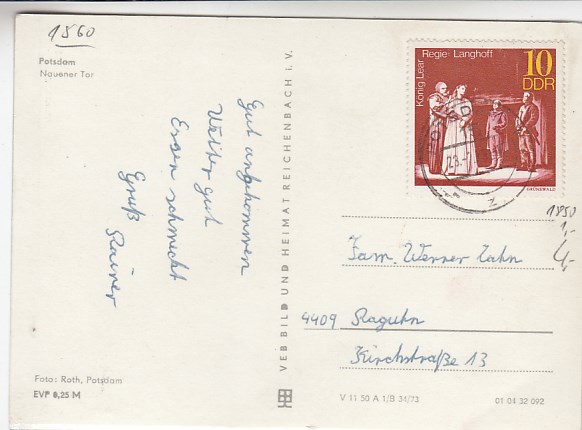 1560
Potsdam
Nauener Tor
Gut angekommen
Wetter gut
Essen schmeckt
Gruß Rainer
Foto: Roth, Potsdam
EVP 0,25 M
VEB BILD UND HEIMAT REICHENBACH i. V.
König Lear Regie: Langhoff
10
DDR
GRÜNEWALD
23.
z
1850
1,-
4,-
Fam. Werner Zahn
4409 Raguhn
Kirchstraße 13
V 11 50 A 1/B 31/73
01 04 32 092